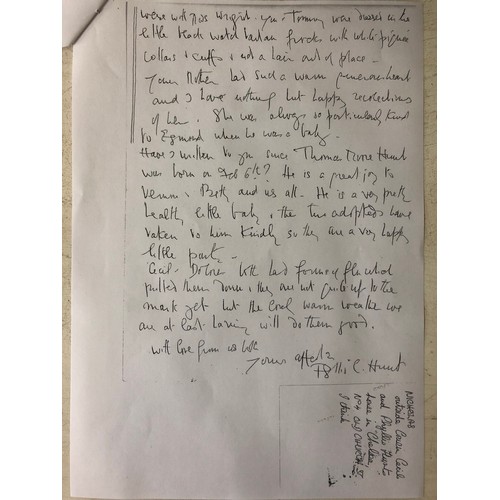 were with Miss Wright. You & Tommy were dressed in
little black watch tartan frocks with white pique
collars & cuffs & not a hair out of place -
Your Mother had such a warm generous heart
and I have nothing but happy recollections
of her. She was always so particularly kind
to Egmond when he was a baby.
Have I written to you since Thomas Hunt
was born on Feb 6th? He is a great joy to
& Betty and us all. He is a very pretty
healthy little baby & the two adopteds have
taken to him kindly so they are a very happy
little party -
Cecil & both had forms of flu which
pulled them down & they are not quite up to the
mark yet but the warm weather we
are at last having will do them good.
With love from us both
Yours affec
Phyllis C. Hunt
NICHOLAS
outside Cousin Cecil
and Phyllis Hunt's
house in Chelsea,
No 4 OLD CHURCH ST
I think